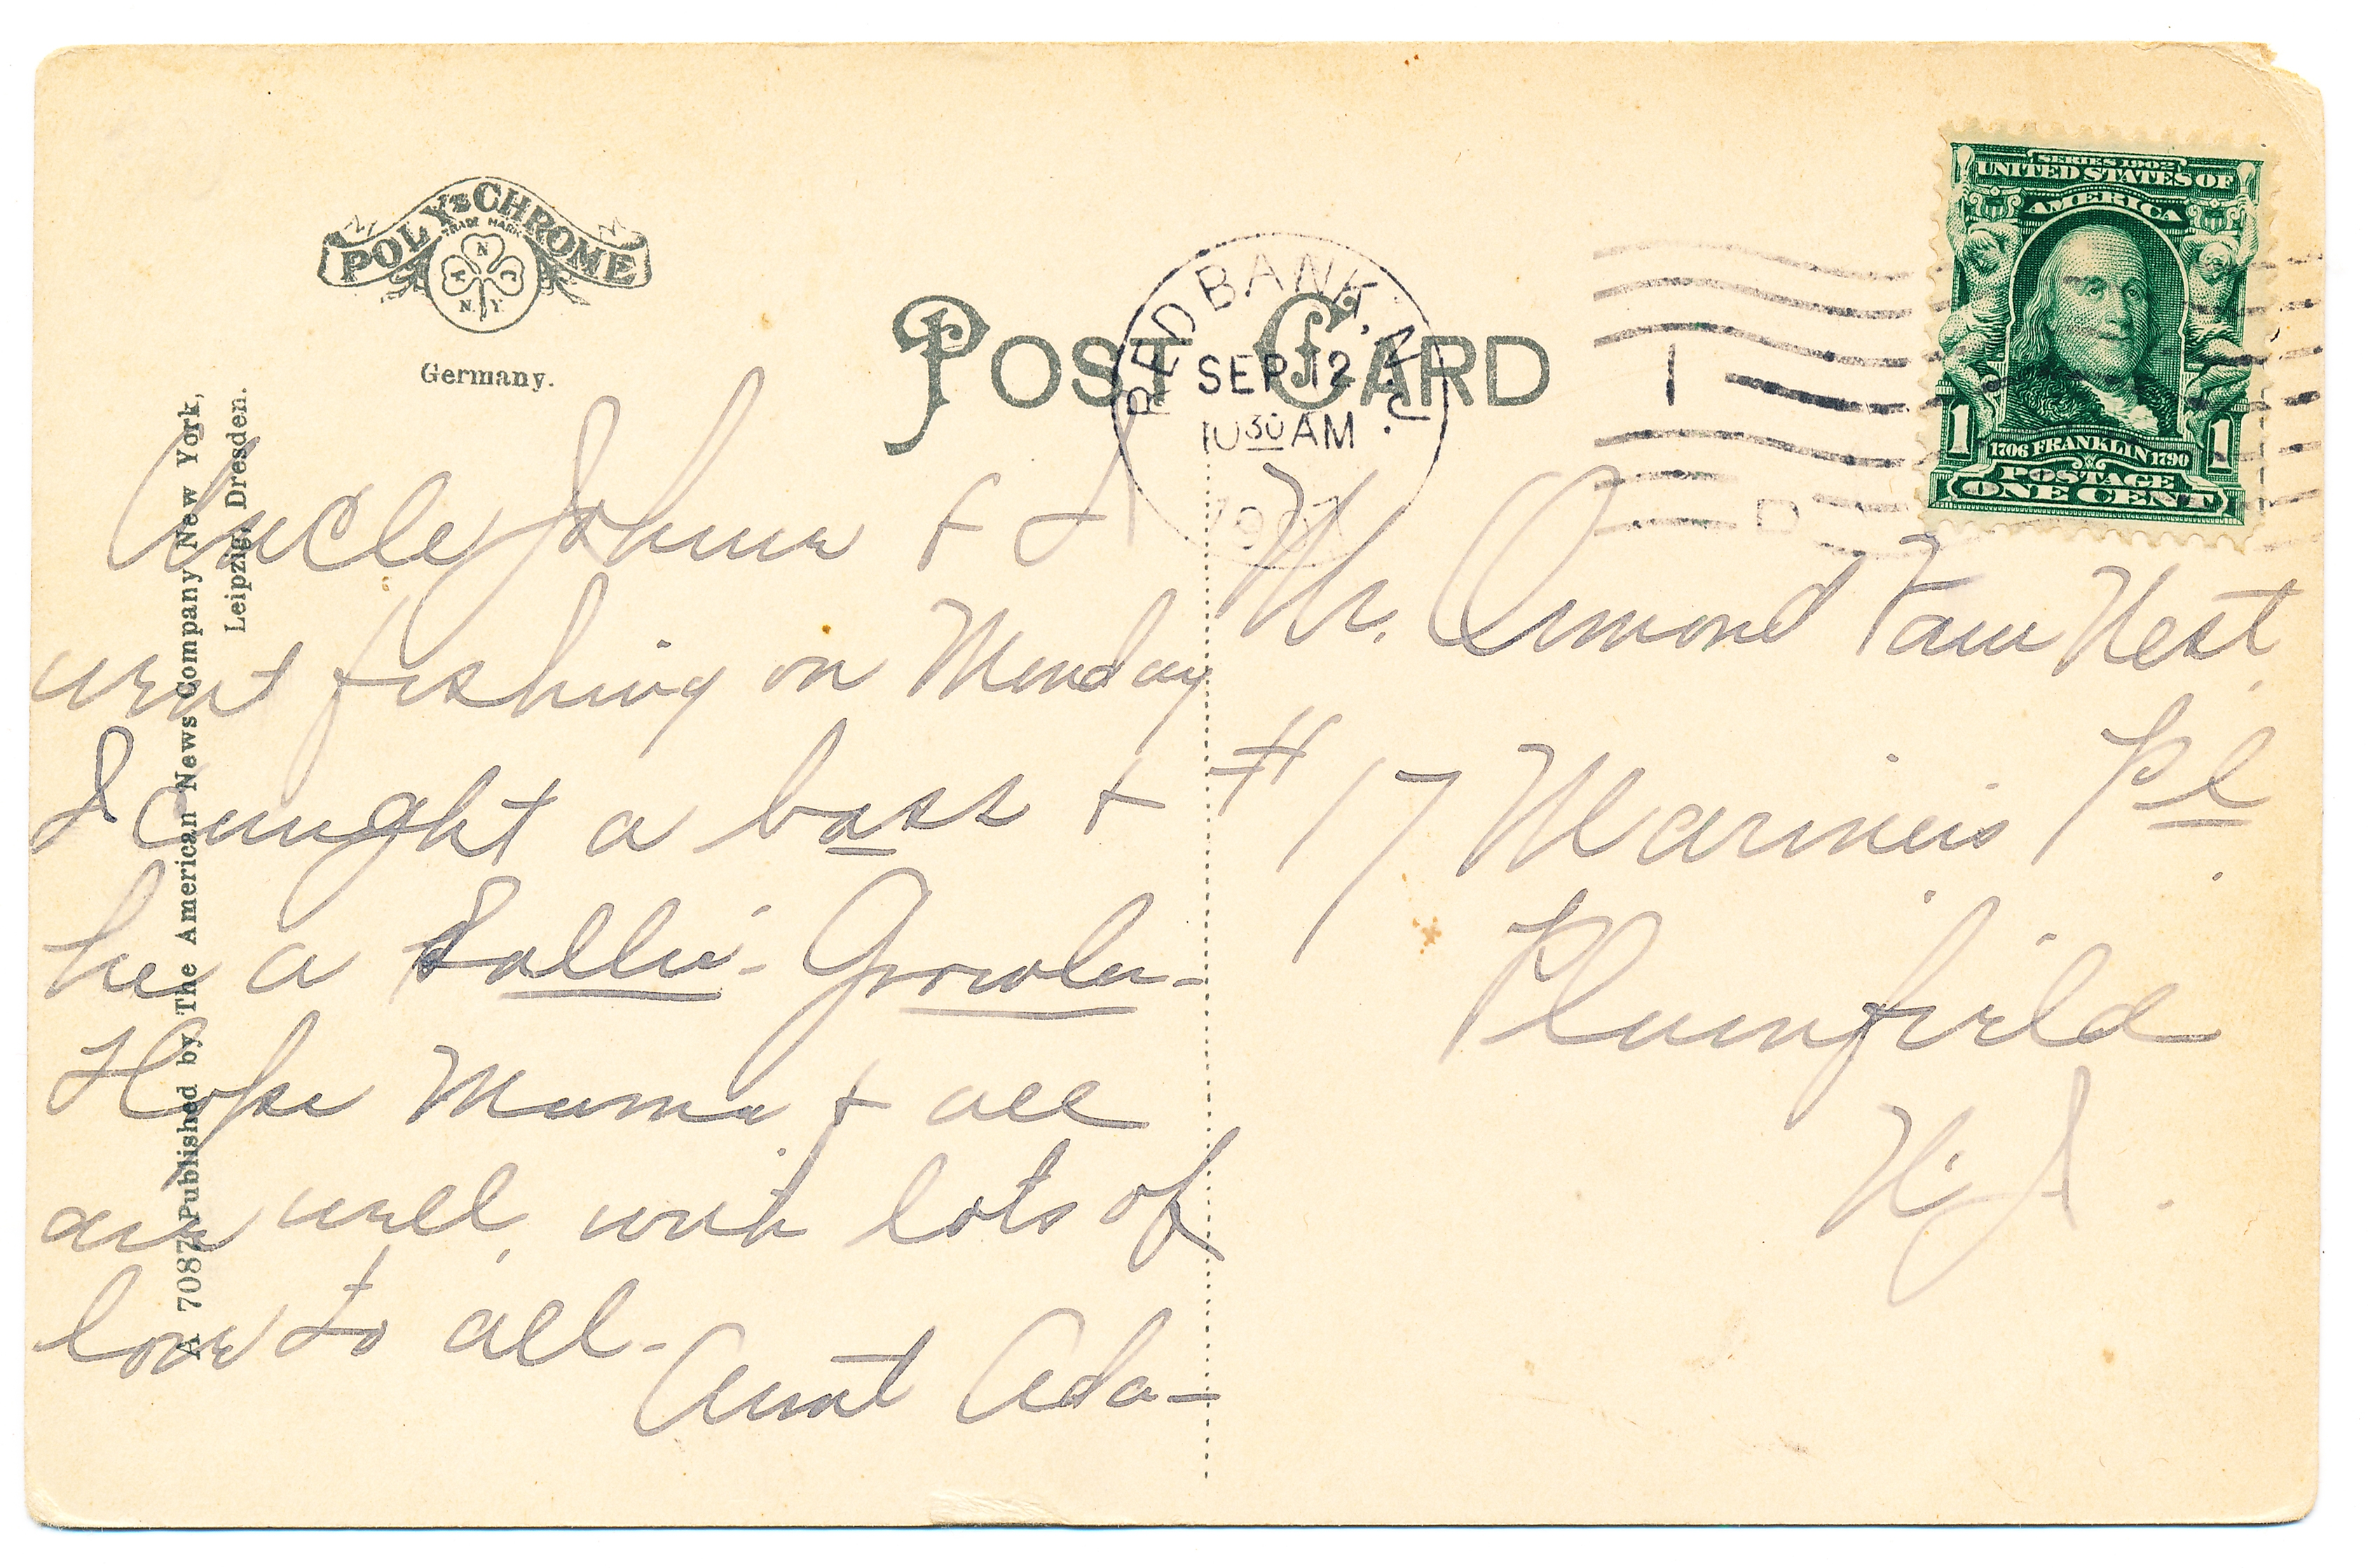 POLY-CHROME
TRADE MARK
A N C
N. Y.
Germany.
POST CARD
RED BANK, N.J.
SEP 12
10 30 AM
1907
1
D
SERIES 1902
UNITED STATES OF
AMERICA
1 1706 FRANKLIN 1790 1
POSTAGE
ONE CENT
A 7087 Published by The American News Company New York,
Leipzig, Dresden.
Uncle John & I
went fishing on Monday
I caught a bass &
he a Sallie-Growler-
Hope Mama & all
are well, with lots of
love to all-
Aunt Ada-
Mr. Ormond Van Nest,
#17 Pl.
Plainfield
N.J.